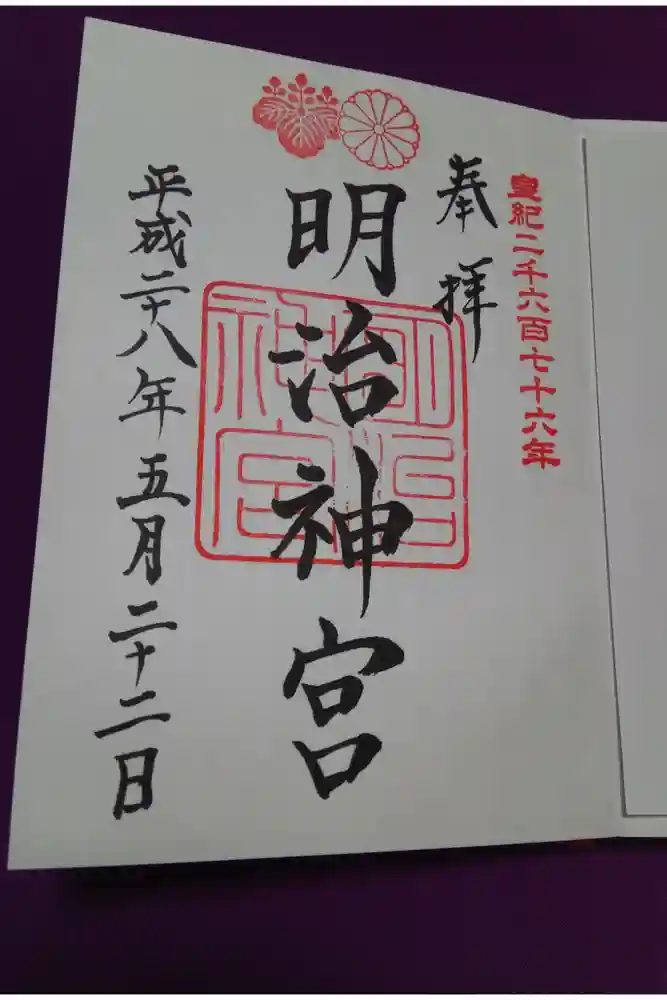 皇紀二千六百七十六年
奉拝
明治神宮
平成二十八年五月二十二日
明治神宮